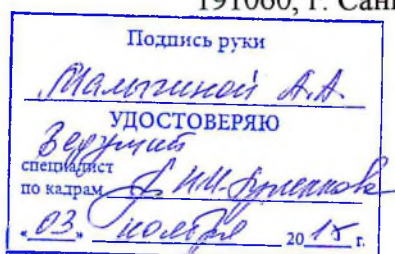 191060, г. Санк
Подпись руки
Малыгиной А.А.
УДОСТОВЕРЯЮ
Ведущий
специалист
по кадрам Н.И.
«03» ноября 2015 г.